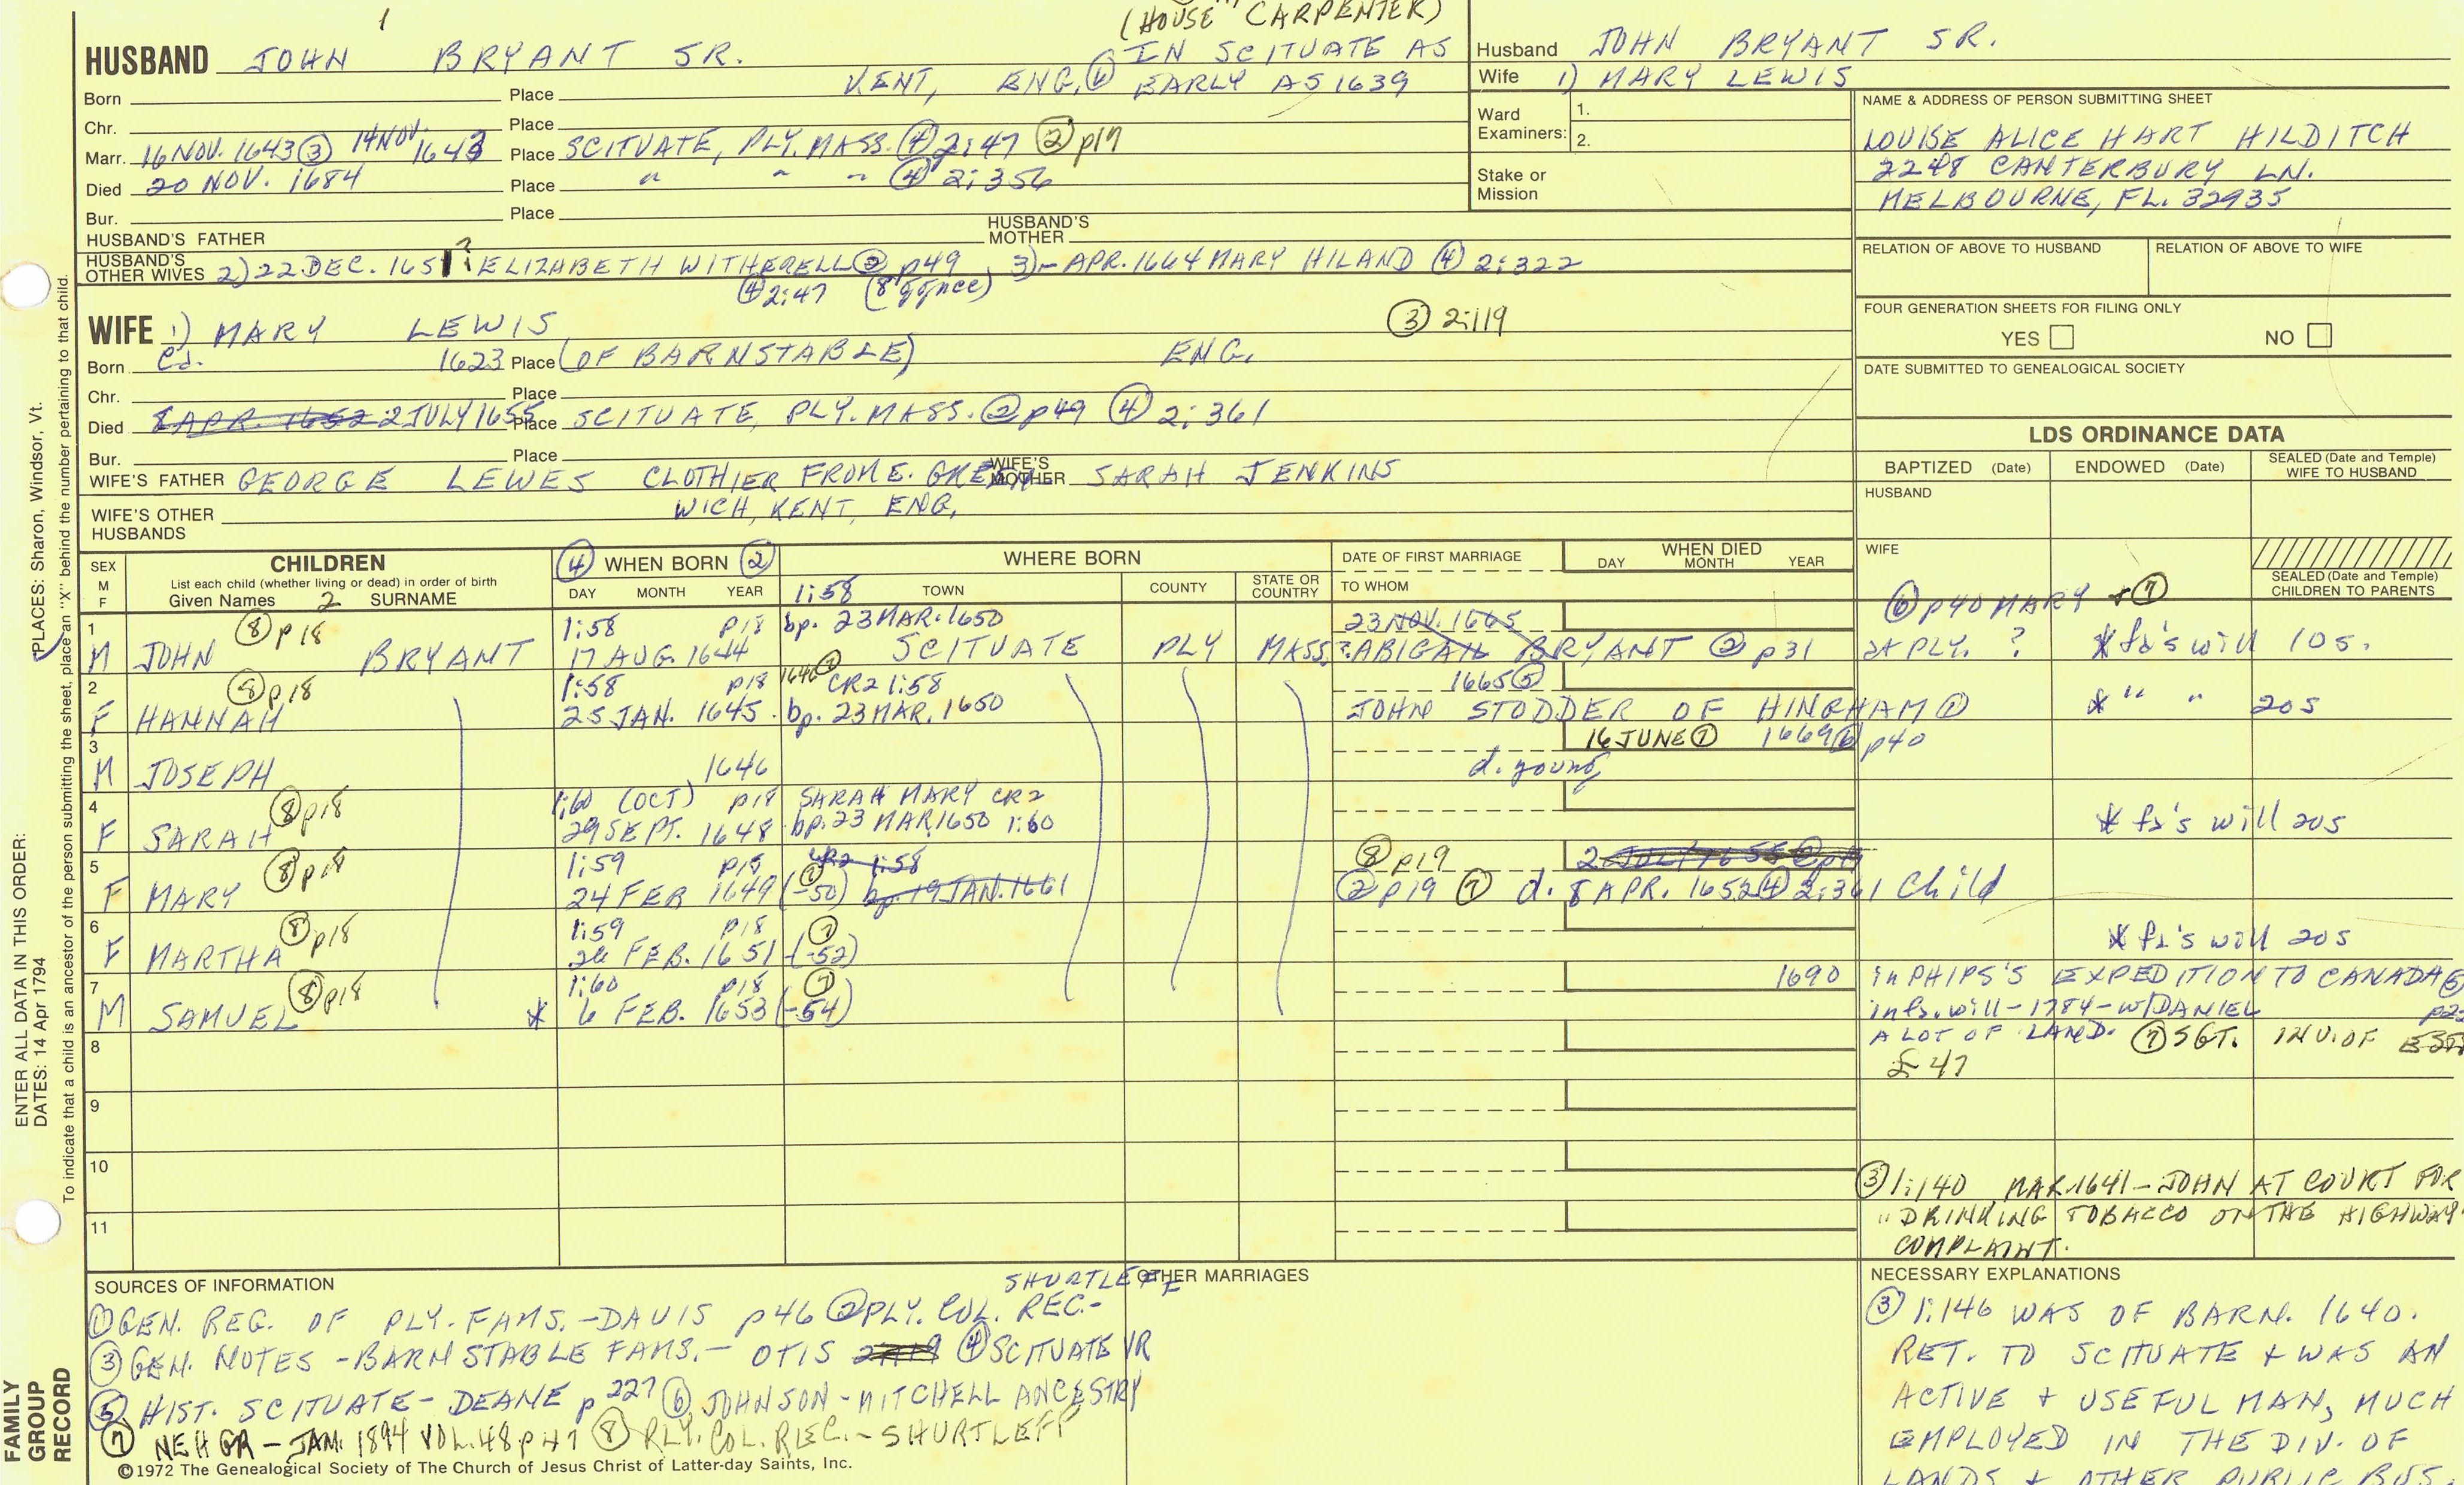 1
(HOUSE CARPENTER)
HUSBAND JOHN BRYANT SR.
IN SCITUATE AS
KENT, ENG. ⑥ EARLY AS 1639
Husband JOHN BRYANT SR.
Wife 1) MARY LEWIS
Born Place
Chr. Place
Marr. 16 NOV. 1643 ③ 14 NOV. 1643 Place SCITUATE, PLY. MASS. ④ 2:47 ② p17
Died 20 NOV. 1684 Place " " " ④ 2:356
Bur. Place
Ward Examiners: 1.
2.
Stake or Mission
NAME & ADDRESS OF PERSON SUBMITTING SHEET
LOUISE ALICE HART HILDITCH
2248 CANTERBURY LN.
MELBOURNE, FL. 32935
HUSBAND'S FATHER HUSBAND'S MOTHER
HUSBAND'S OTHER WIVES 2) 22 DEC. 1657 ? ELIZABETH WITHERELL ② p49, 3) - APR. 1664 MARY HILAND ④ 2:322
④ 2:47
RELATION OF ABOVE TO HUSBAND RELATION OF ABOVE TO WIFE
FOUR GENERATION SHEETS FOR FILING ONLY
YES NO
DATE SUBMITTED TO GENEALOGICAL SOCIETY
WIFE 1) MARY LEWIS
③ 2:119
Born 1623 Place (OF BARNSTABLE) ENG.
Chr. Place
Died 8 APR. 1652 2 JULY 1655 Place SCITUATE, PLY. MASS. ② p49 ④ 2:361
Bur. Place
WIFE'S FATHER GEORGE LEWES CLOTHIER FROM E. GREEN WIFE'S MOTHER SARAH JENKINS
WICH, KENT, ENG.
WIFE'S OTHER HUSBANDS
LDS ORDINANCE DATA
BAPTIZED (Date) ENDOWED (Date) SEALED (Date and Temple) WIFE TO HUSBAND
HUSBAND
WIFE
SEALED (Date and Temple) CHILDREN TO PARENTS
SEX M F
CHILDREN
List each child (whether living or dead) in order of birth
Given Names 2 SURNAME
④ WHEN BORN ②
DAY MONTH YEAR
WHERE BORN
1:58 TOWN COUNTY STATE OR COUNTRY
DATE OF FIRST MARRIAGE
TO WHOM
WHEN DIED
DAY MONTH YEAR
⑥ p40 MARY + ⑦
1 ⑧ p18 1:58 p18 bp. 23 MAR. 1650 23 NOV. 1665
M JOHN BRYANT 17 AUG. 1644 SCITUATE PLY MASS. ? ABIGAIL BRYANT ② p31 at PLY. ? * fa's will 10s.
2 ⑧ p18 1:58 p18 1646 ⑦ CR2 1:58 1665 ⑤
F HANNAH 25 JAN. 1645 bp. 23 MAR. 1650 JOHN STODDER OF HINGHAM ① * " " 20s
3 16 JUNE ⑦ 1669 ⑥ p40
M JOSEPH 1646 d. young
4 ⑧ p18 1:60 (OCT) p18 SARAH MARY CR2
F SARAH 29 SEPT. 1648 bp. 23 MAR. 1650 1:60 * fa's will 20s
5 ⑧ p18 1:59 p18 CR2 1:58 ⑧ p19 2 JULY 1655 ② p19
F MARY 24 FEB 1649 (-50) ⑦ bp. 19 JAN. 1661 ② p19 ⑦ d. 8 APR. 1652 ④ 2:361 Child
6 ⑧ p18 1:59 p18 ⑦
F MARTHA 26 FEB. 1651 (-52) * fa's will 20s
7 ⑧ p18 1:60 p18 ⑦ 1690 in PHIPS'S EXPEDITION TO CANADA ⑤
M SAMUEL * 6 FEB. 1653 (-54) in fs. will - 1784 - W/DANIEL
A LOT OF LAND. ⑦ SGT. INV. OF EST.
£47
8
9
10
11
③ 1:140 MAR. 1641 - JOHN AT COURT FOR
"DRINKING TOBACCO ON THE HIGHWAY"
COMPLAINT.
SOURCES OF INFORMATION
OTHER MARRIAGES
SHURTLEFF
① GEN. REG. OF PLY. FAMS. - DAVIS p46 ② PLY. COL. REC. -
③ GEN. NOTES - BARNSTABLE FAMS. - OTIS ④ SCITUATE VR
⑤ HIST. SCITUATE - DEANE p 227 ⑥ JOHNSON - MITCHELL ANCESTRY
⑦ NEHGR - JAN. 1894 VOL. 48 p47 ⑧ PLY. COL. REC. - SHURTLEFF
©1972 The Genealogical Society of The Church of Jesus Christ of Latter-day Saints, Inc.
NECESSARY EXPLANATIONS
③ 1:146 WAS OF BARN. 1640.
RET. TO SCITUATE + WAS AN
ACTIVE + USEFUL MAN, MUCH
EMPLOYED IN THE DIV. OF
LANDS + OTHER PUBLIC BUS.
ENTER ALL DATA IN THIS ORDER:
DATES: 14 Apr 1794
PLACES: Sharon, Windsor, Vt.
To indicate that a child is an ancestor of the person submitting the sheet, place an "X" behind the number pertaining to that child.
FAMILY
GROUP
RECORD